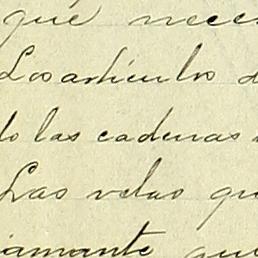 que neces
Los artículos d
do las cadenas
Las velas qu
iamante que